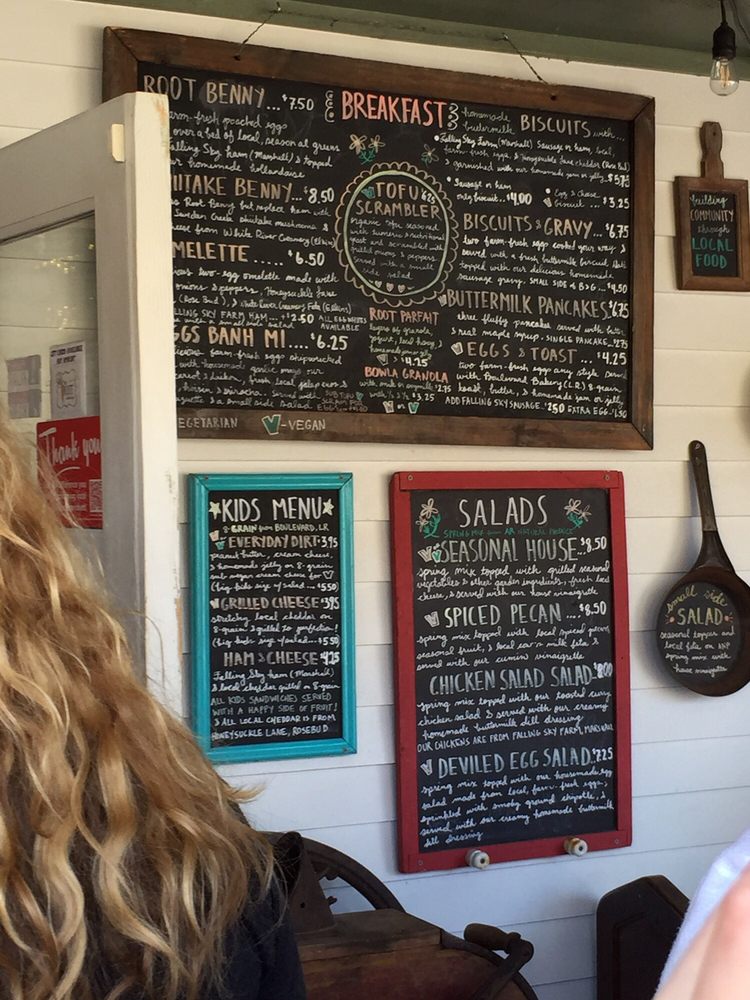 ROOT BENNY...$7.50
farm-fresh poached eggs
over a bed of local, seasonal greens
Falling Sky ham (Marshall) & topped
homemade hollandaise
BENNY...$8.50
Root Benny but replace ham with
Sweden Creek shiitake mushrooms &
cheese from White River Creamery (Elkins)
$6.50
two-egg omelette made with
onions & peppers, Honeysuckle Lane
(Rose Bud), & White River Creamery Feta (Elkins)
SKY FARM HAM...+$2.50
with a small side salad
ALL EGG WHITES AVAILABLE
BANH MI....$6.25
farm-fresh eggs
with housemade garlic mayo, our
fresh local jalapenos &
hoisin & sriracha. served with
& a small side salad
VEGETARIAN V-VEGAN
BREAKFAST
TOFU $6.25
SCRAMBLER
organic tofu seasoned
with turmeric & nutritional
yeast and scrambled with
grilled onions & peppers
served with a small
side salad
ROOT PARFAIT
layers of granola,
yogurt, local honey,
$4.25
BOWLA GRANOLA
with milk or soymilk $2.75
$3.25
homemade
buttermilk BISCUITS with...
Falling Sky Farm (Marshall) Sausage or ham, local,
farm-fresh eggs, & Honeysuckle Lane cheddar (Rose Bud)
garnished with our homemade jam or jelly $5.75
Sausage or ham
only biscuit...$4.00
Egg & cheese
biscuit...$3.25
BISCUITS & GRAVY...$6.75
two farm-fresh eggs cooked your way &
served with a fresh buttermilk biscuit. Half
topped with our delicious homemade
sausage gravy. SMALL SIDE 4 B&G...$4.50
BUTTERMILK PANCAKES $6.75
three fluffy pancakes served with butter
& real maple syrup. SINGLE PANCAKE..2.75
EGGS & TOAST...$4.25
two farm-fresh eggs any style
with Boulevard Bakery (L.R.) 8-grain
toast, butter, & homemade jam or jelly
ADD FALLING SKY SAUSAGE..$2.50 EXTRA EGG..1.50
building
COMMUNITY
through
LOCAL
FOOD
Thank you
KIDS MENU
8-GRAIN from BOULEVARD, LR
EVERYDAY DIRT $3.95
peanut butter, cream cheese,
& homemade jelly on 8-grain
sub vegan cream cheese for V
(big kids size w/ salad...$5.50)
GRILLED CHEESE $3.95
stretchy local cheddar on
8-grain & grilled to perfection!
(big kids size w/ salad...$5.50)
HAM & CHEESE $4.25
Falling Sky ham (Marshall)
& local cheddar grilled on 8-grain
ALL KIDS SANDWICHES SERVED
WITH A HAPPY SIDE OF FRUIT!
& ALL LOCAL CHEDDAR IS FROM
HONEYSUCKLE LANE, ROSEBUD
SALADS
SPRING MIX from AR NATURAL PRODUCE
SEASONAL HOUSE...$8.50
spring mix topped with grilled seasonal
vegetables & other garden ingredients, fresh local
cheese, & served with our house vinaigrette
SPICED PECAN...$8.50
spring mix topped with local spiced pecans
seasonal fruit, & local feta &
served with our cumin vinaigrette
CHICKEN SALAD SALAD $8.00
spring mix topped with our toasted curry
chicken salad & served with our creamy
homemade buttermilk dill dressing
OUR CHICKENS ARE FROM FALLING SKY FARM, MARSHALL
DEVILED EGG SALAD..$7.25
spring mix topped with our housemade egg
salad made from local, farm-fresh eggs, &
sprinkled with smoky ground chipotle, &
served with our creamy homemade buttermilk
dill dressing
small side
SALAD
seasonal topper and
local feta on ANP
spring mix w/
house vinaigrette